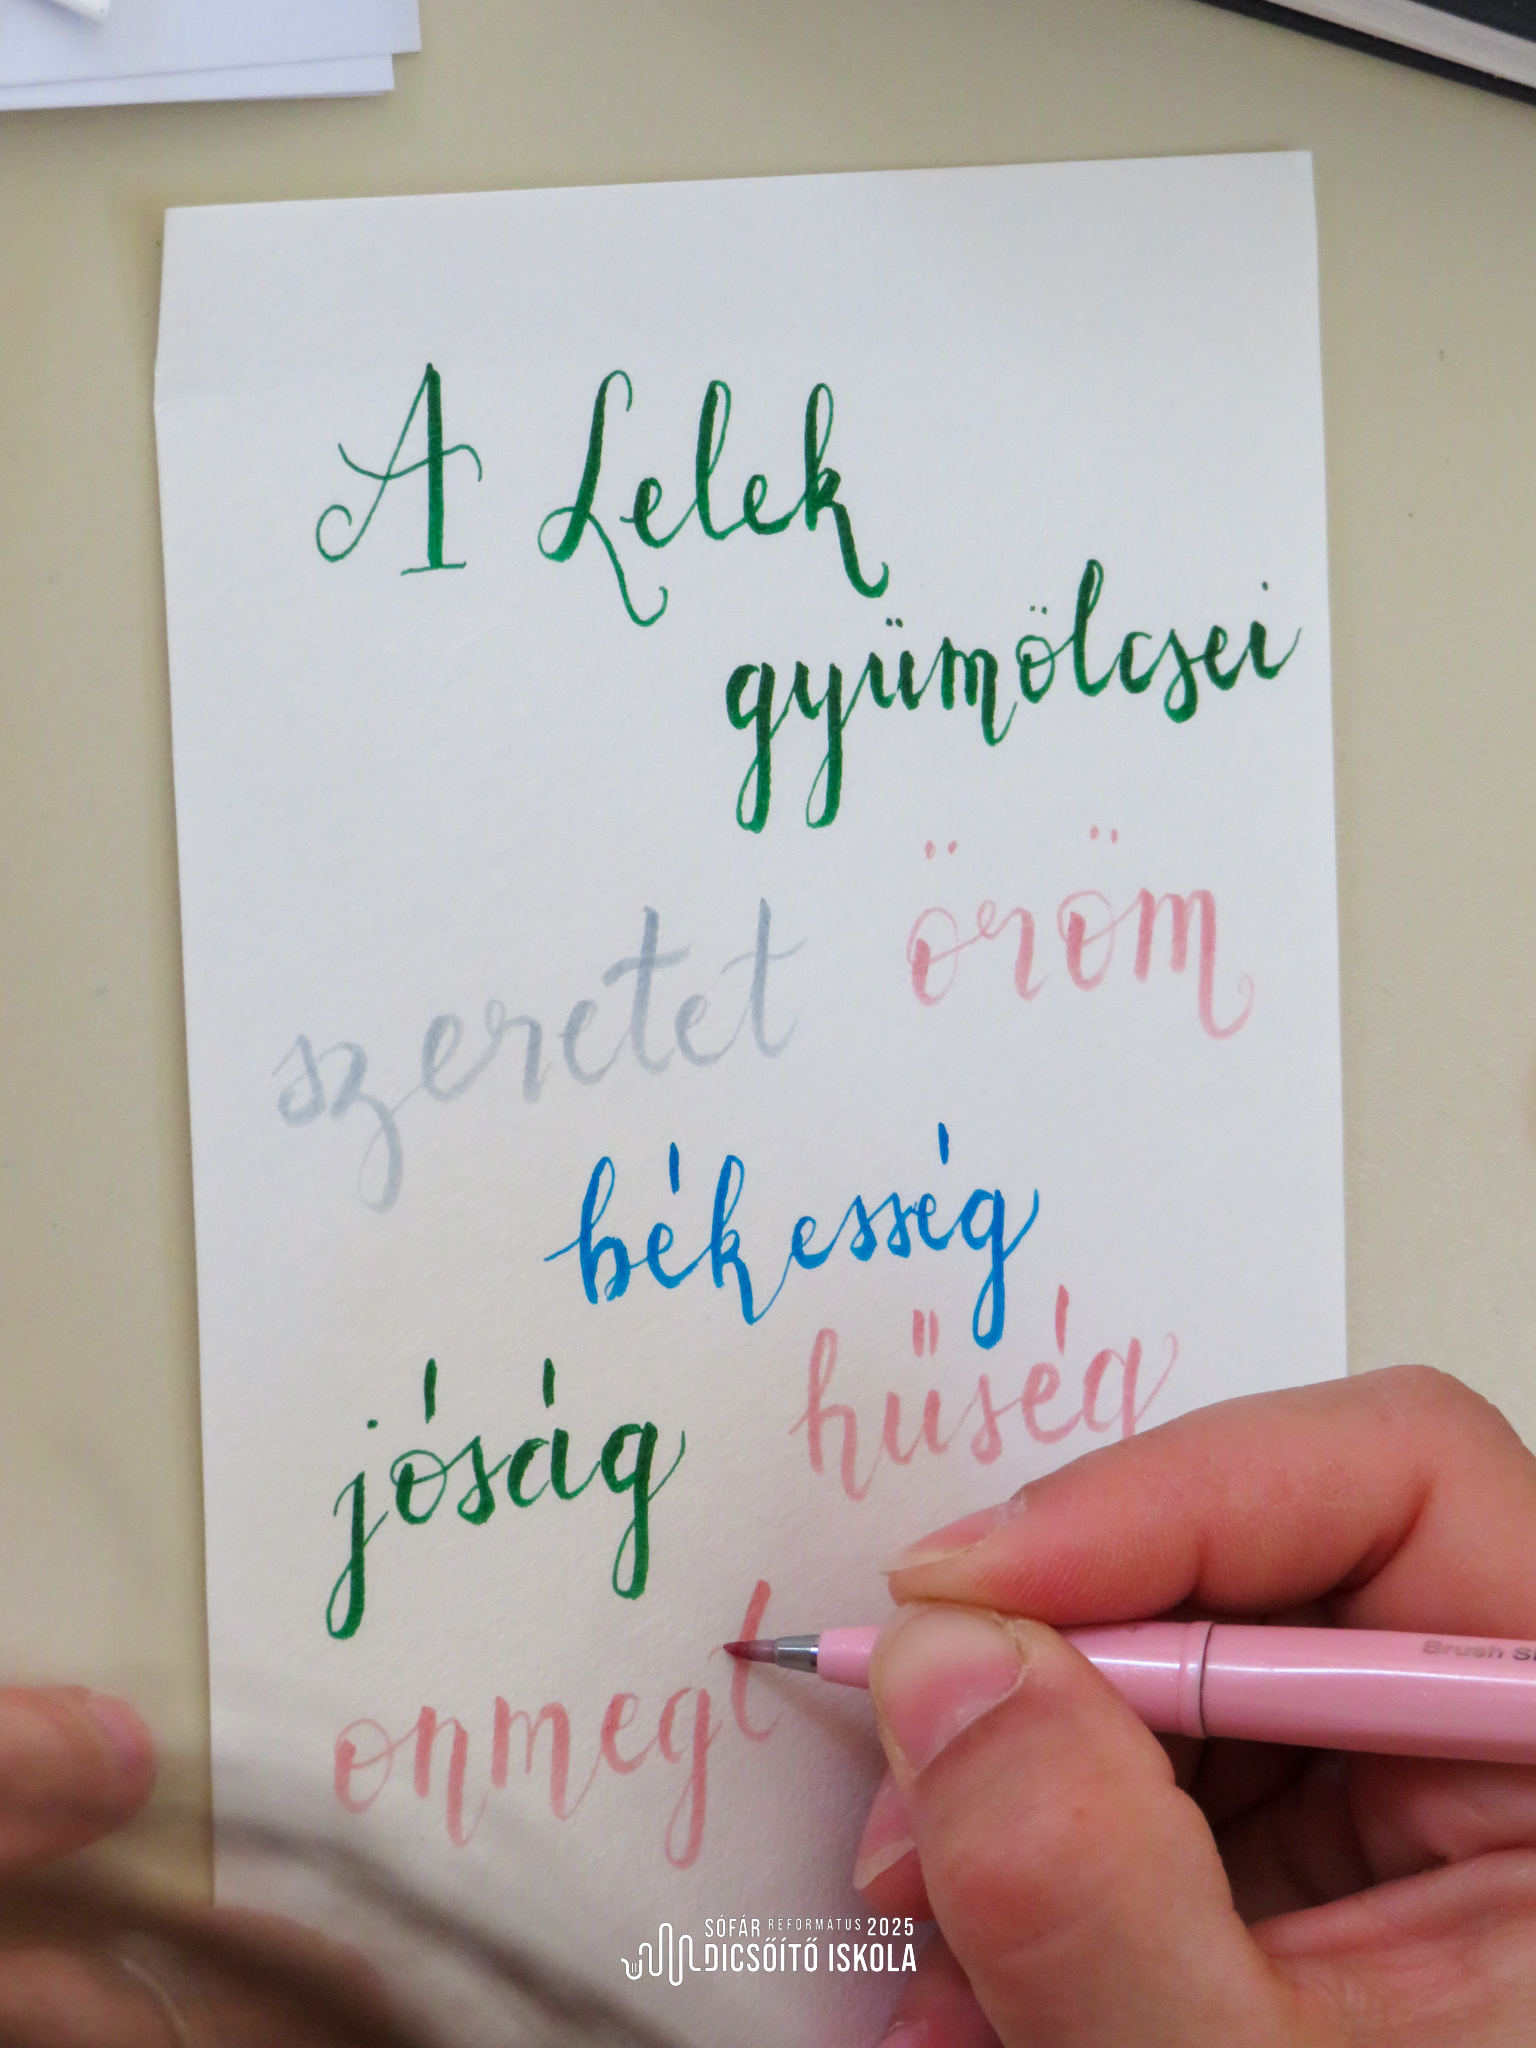 A Lelek
gyümölcsei
szeretet öröm
békesség
jóság hűség
onmegt
Brush
SÓFÁR REFORMÁTUS 2025
DICSŐÍTŐ ISKOLA